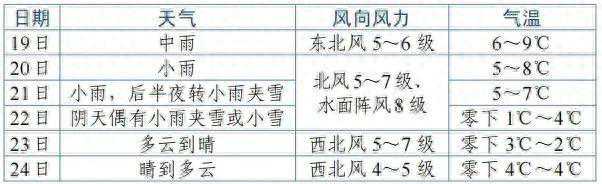 日期 天气 风向风力 气温
19日 中雨 东北风5～6级 6～9℃
20日 小雨 北风5～7级、水面阵风8级 5～8℃
21日 小雨，后半夜转小雨夹雪 5～7℃
22日 阴天偶有小雨夹雪或小雪 零下1℃～4℃
23日 多云到晴 西北风5～7级 零下3℃～2℃
24日 晴到多云 西北风4～5级 零下4℃～4℃